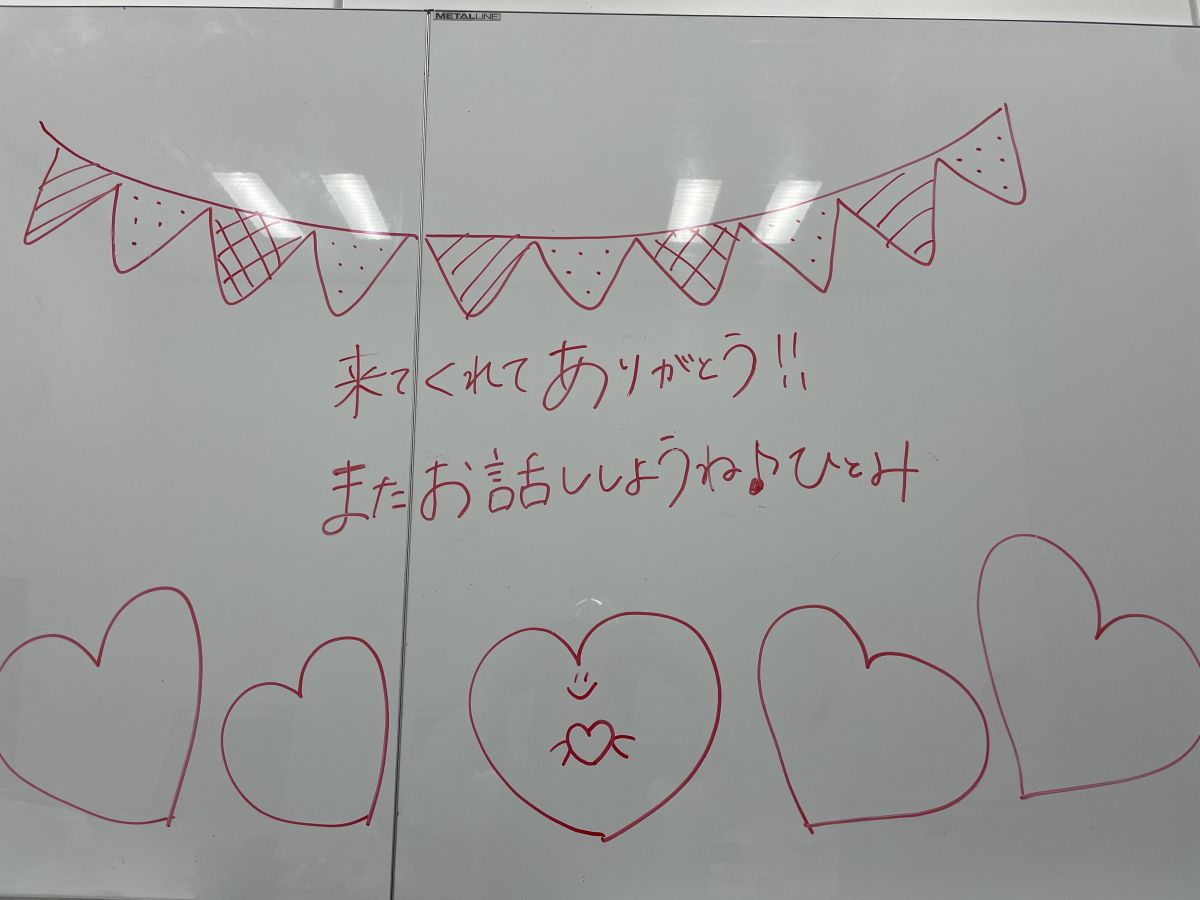 METALLINE
来てくれてありがとう!!
またお話ししようね♪ひとみ